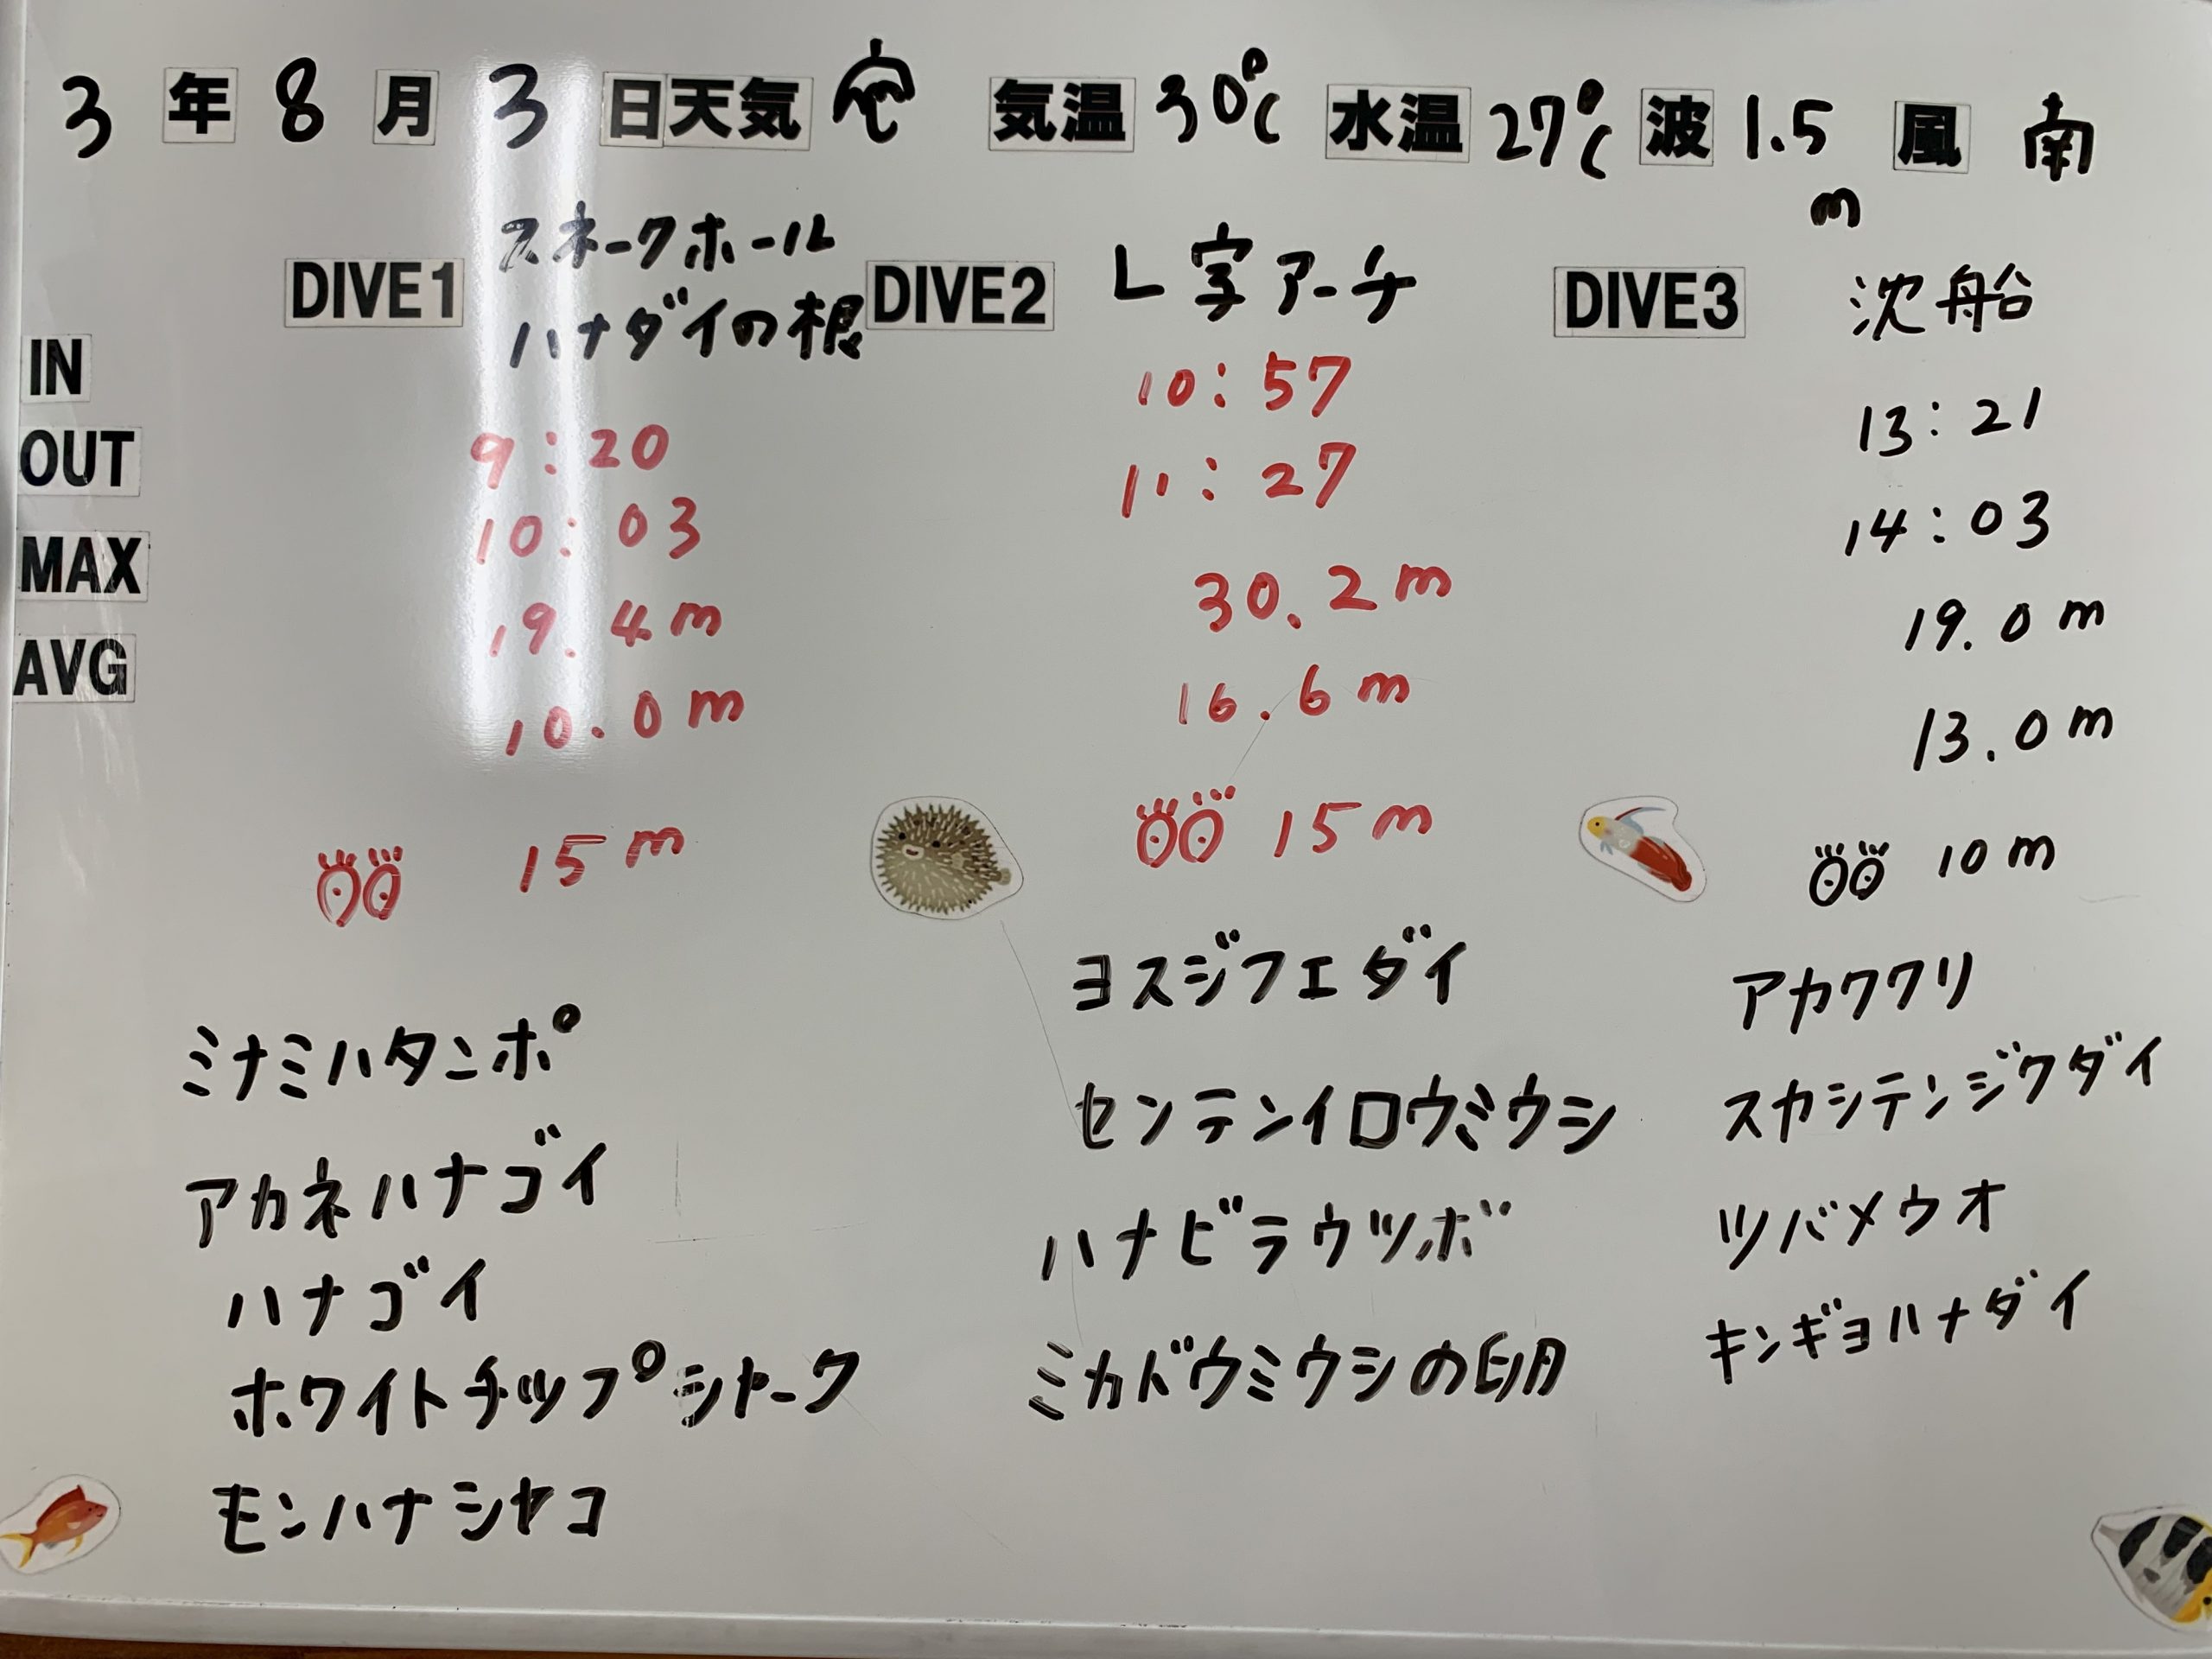 3年8月3日天気 気温30℃ 水温27℃ 波1.5m 風 南
DIVE1 スネークホール
ハナダイの根
IN 9:20
OUT 10:03
MAX 19.4m
AVG 10.0m
15m
ミナミハタンポ
アカネハナゴイ
ハナゴイ
ホワイトチップシャーク
モンハナシャコ
DIVE2 L字アーチ
10:57
11:27
30.2m
16.6m
15m
ヨスジフエダイ
センテンイロウミウシ
ハナビラウツボ
ミカドウミウシの卵
DIVE3 沈船
13:21
14:03
19.0m
13.0m
10m
アカククリ
スカシテンジクダイ
ツバメウオ
キンギョハナダイ